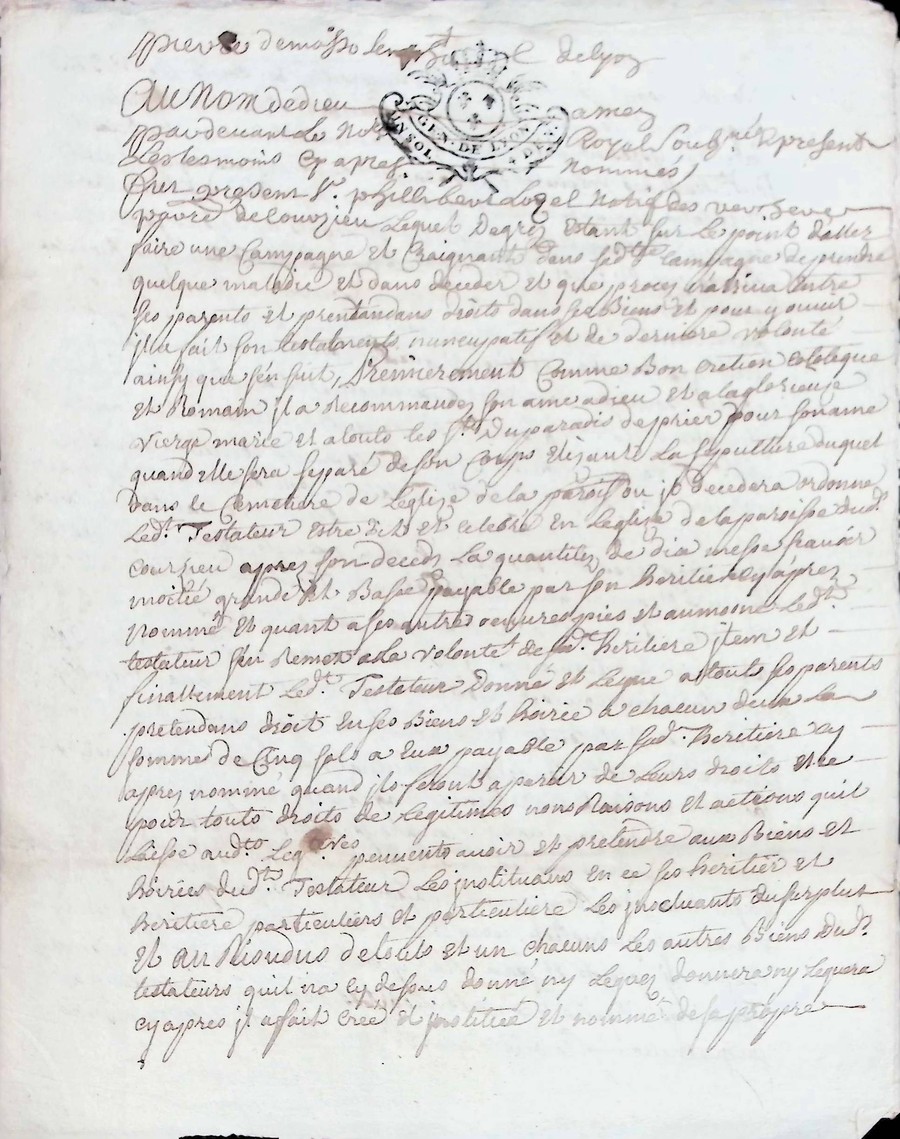 pierre demasso de Lyon
Au Nom de dieu amen
pardevant Le Not Royal Soubz.né Et present
Les tesmoins Cy apres nommés
fut present Sr. philibert Natif des
parre de Lequel Degrez Estant sur Le point daller
faire une Campagne Et Craignant dans sad.te Campagne de prendre
quelque maladie Et dans deceder Et que proces Entre
ses parents Et pretendans droits dans ses Biens Et pour y
Il a fait son testaments nuncupatif Et de derniere volonté
ainsy que sen suit, Premierement Comme Bon cretien
Et Romain jl a Recommandez son ame adieu Et alaglorieuse
vierge marie Et atouts les Sts. Du paradis de prier pour son ame
quand Elle sera separé de son Corps La sepulture duquel
dans le Cemetiere de Leglize de la parois ou jl Decedera ordonne
Led.t Testateur Estre dit Et celebré En Leglize de la paroisse dud.t
courzieu apres son deceds La quantitez de dix messe scavoir
moitié grande Et Basse payable par son heritiere cy apres
Nommé Et quant a ses autres oeuvres pies Et aumosne Led.t
testateur sen Remet ala volonté de sad.t heritiere jtem Et
finallement Led.t Testateur Donné Et Legue atouts ses parents
pretendans droit En ses Biens Et hoirée a chacun deux La
somme de Cinq sols a Eux payable par sad. heritiere cy
apres nommé quand jls feront aparoir de Leurs droits Et ce
pour touts droits de Legitimes noms Raisons Et actions quil
Laisse aud.ts peuvents avoir Et pretendre aux Biens Et
hoiries dud.t Testateur Les jnstituans En ce ses heritier Et
heritiere particuliers Et particuliere Les jnscluants du surplus
Et au Residus de touts Et un chacuns Les autres Biens Dud.t
testateurs quil na cy dessus donné ny Leguez donnera ny Leguera
cy apres jl a fait créé Et jnstitué Et nommé de sa propre